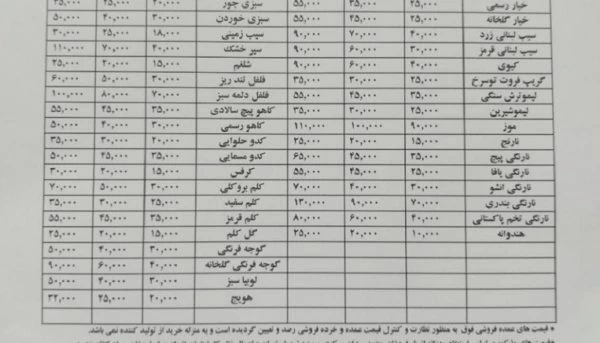 خیار رسمی ۲۵,۰۰۰ ۳۵,۰۰۰ ۵۵,۰۰۰ سبزی جور ۲۰,۰۰۰
خیار گلخانه ۲۵,۰۰۰ ۴۵,۰۰۰ ۵۵,۰۰۰ سبزی خوردن ۳۰,۰۰۰ ۲۰,۰۰۰ ۵۰,۰۰۰
سیب لبنانی زرد ۴۰,۰۰۰ ۷۰,۰۰۰ ۹۰,۰۰۰ سیب زمینی ۱۸,۰۰۰ ۲۵,۰۰۰ ۳۰,۰۰۰
سیب لبنانی قرمز ۳۰,۰۰۰ ۶۰,۰۰۰ ۹۰,۰۰۰ سیر خشک ۴۰,۰۰۰ ۷۰,۰۰۰ ۱۱۰,۰۰۰
کیوی ۴۰,۰۰۰ ۶۰,۰۰۰ ۹۰,۰۰۰ شلغم ۱۵,۰۰۰ ۲۰,۰۰۰ ۲۵,۰۰۰
گریپ فروت توسرخ ۲۵,۰۰۰ ۳۰,۰۰۰ ۳۵,۰۰۰ فلفل تند ریز ۳۰,۰۰۰ ۵۰,۰۰۰ ۶۰,۰۰۰
لیموترش سنگی ۳۵,۰۰۰ ۴۵,۰۰۰ ۵۵,۰۰۰ فلفل دلمه سبز ۷۰,۰۰۰ ۸۰,۰۰۰ ۱۰۰,۰۰۰
لیموشیرین ۲۵,۰۰۰ ۳۰,۰۰۰ ۳۵,۰۰۰ کاهو پیچ سالادی ۳۵,۰۰۰ ۴۵,۰۰۰ ۵۵,۰۰۰
موز ۹۰,۰۰۰ ۱۰۰,۰۰۰ ۱۱۰,۰۰۰ کاهو رسمی ۳۰,۰۰۰ ۴۰,۰۰۰ ۵۰,۰۰۰
نارنج ۱۵,۰۰۰ ۲۰,۰۰۰ ۲۵,۰۰۰ کدو حلوایی ۲۰,۰۰۰ ۳۰,۰۰۰ ۳۵,۰۰۰
نارنگی پیچ ۳۵,۰۰۰ ۴۵,۰۰۰ ۶۵,۰۰۰ کدو مسمایی ۳۵,۰۰۰ ۴۵,۰۰۰ ۵۰,۰۰۰
نارنگی یافا ۲۵,۰۰۰ ۴۵,۰۰۰ ۵۵,۰۰۰ کرفس ۱۵,۰۰۰ ۲۰,۰۰۰ ۳۰,۰۰۰
نارنگی انشو ۳۰,۰۰۰ ۴۰,۰۰۰ ۷۰,۰۰۰ کلم بروکلی ۳۰,۰۰۰ ۵۰,۰۰۰ ۷۰,۰۰۰
نارنگی بندری ۷۰,۰۰۰ ۹۰,۰۰۰ ۱۳۰,۰۰۰ کلم سفید ۲۵,۰۰۰ ۳۰,۰۰۰ ۳۵,۰۰۰
نارنگی تخم پاکستانی ۴۰,۰۰۰ ۶۰,۰۰۰ ۸۰,۰۰۰ کلم قرمز ۳۵,۰۰۰ ۴۵,۰۰۰ ۵۵,۰۰۰
هندوانه ۱۰,۰۰۰ ۲۰,۰۰۰ ۲۵,۰۰۰ گل کلم ۱۵,۰۰۰ ۲۰,۰۰۰ ۲۵,۰۰۰
گوجه فرنگی ۳۰,۰۰۰ ۴۰,۰۰۰ ۵۰,۰۰۰
گوجه فرنگی گلخانه ۴۰,۰۰۰ ۶۰,۰۰۰ ۹۰,۰۰۰
لوبیا سبز ۳۰,۰۰۰ ۴۰,۰۰۰ ۵۰,۰۰۰
هویج ۲۰,۰۰۰ ۲۵,۰۰۰ ۳۲,۰۰۰
* قیمت های عمده فروشی فوق به منظور نظارت و کنترل قیمت عمده و خرده فروشی رصد و تعیین گردیده است و به منزله خرید از تولید کننده نمی باشد.